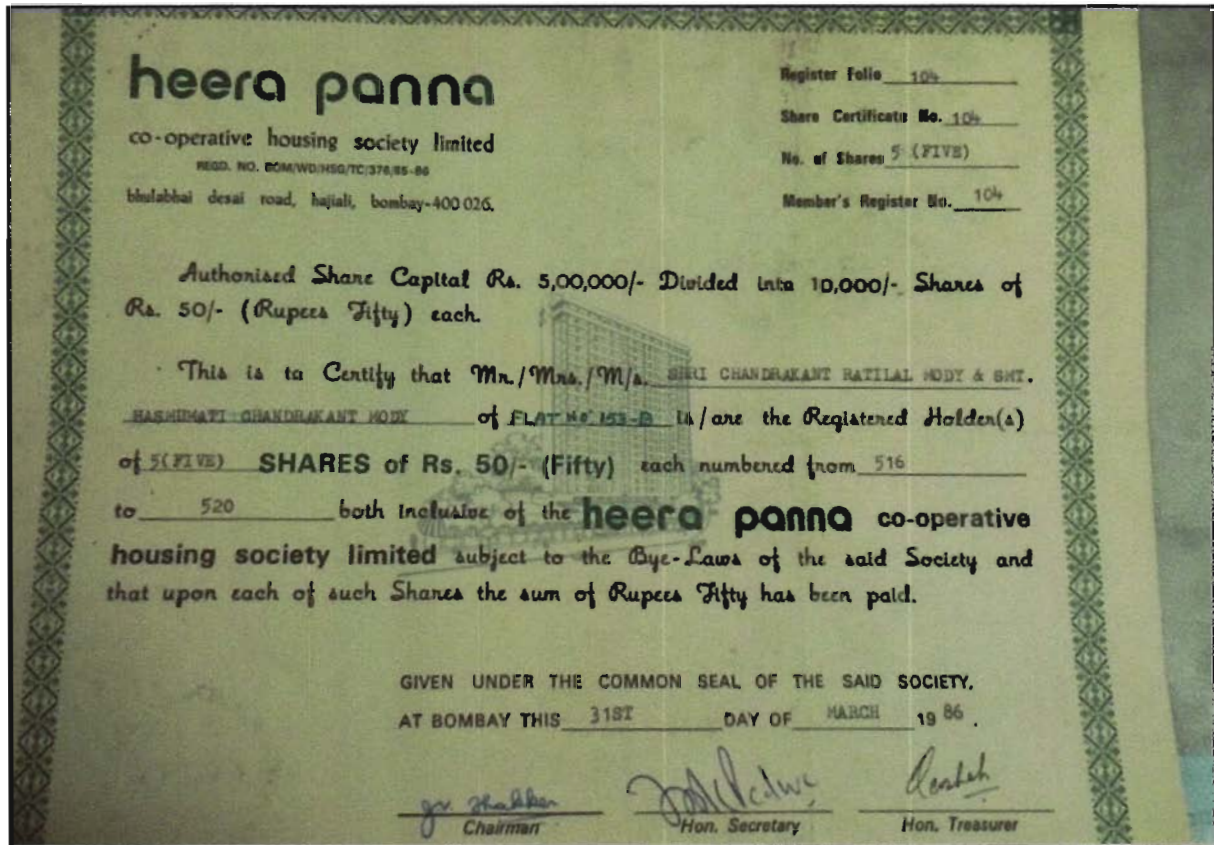 heera panna
co-operative housing society limited
REGD. NO. BOM/WD/HSG/TC/376/85-86
bhulabhai desai road, hajiali, bombay-400 026.
Register Folio 104
Share Certificate No. 104
No. of Shares 5 (FIVE)
Member's Register No. 104
Authorised Share Capital Rs. 5,00,000/- Divided into 10,000/- Shares of
Rs. 50/- (Rupees Fifty) each.
This is to Certify that Mr./Mrs./M/s. SHRI CHANDRAKANT RATILAL MODY & SMT.
HASHUMATI CHANDRAKANT MODY of FLAT NO. 153-B is/are the Registered Holder(s)
of 5(FIVE) SHARES of Rs. 50/- (Fifty) each numbered from 516
to 520 both inclusive of the heera panna co-operative
housing society limited subject to the Bye-Laws of the said Society and
that upon each of such Shares the sum of Rupees Fifty has been paid.
GIVEN UNDER THE COMMON SEAL OF THE SAID SOCIETY,
AT BOMBAY THIS 31ST DAY OF MARCH 19 86 .
Chairman Hon. Secretary Hon. Treasurer